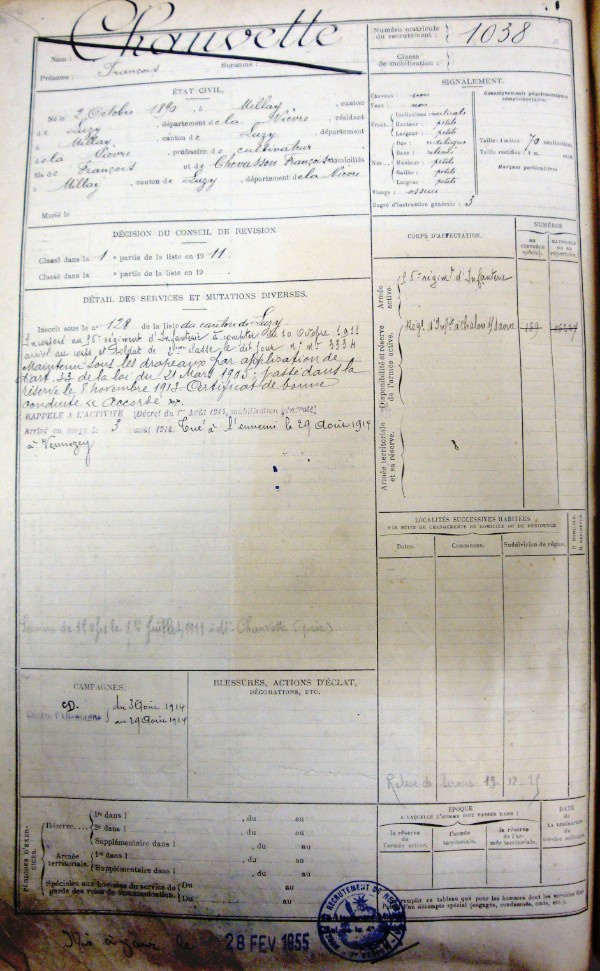 Chauvette
Nom :
Prénoms : François Surnoms :
Numéro matricule du recrutement : 1038
Classe de mobilisation :
ÉTAT CIVIL.
Né le 2 Octobre 1890, à Millay, canton
de Luzy, département de la Nièvre, résidant
à Millay, canton de Luzy, département
de la Nièvre, profession de cultivateur
fils de François et de Chevasson Françoise domiciliés
à Millay, canton de Luzy, département de la Nièvre
Marié le
SIGNALEMENT.
Cheveux :
Yeux :
Front. Inclinaison :
Hauteur : petite
Largeur : petite
Nez. Dos :
Base :
Hauteur : petite
Saillie : petite
Largeur : petite
Visage : osseux
Degré d'instruction générale : 3
Renseignements physionomiques complémentaires :
Taille : 1 mètre 70 centimètres
Taille rectifiée : 1 m. cent.
Marques particulières :
DÉCISION DU CONSEIL DE REVISION.
Classé dans la 1 e partie de la liste en 1911.
Classé dans la e partie de la liste en 19
DÉTAIL DES SERVICES ET MUTATIONS DIVERSES.
Inscrit sous le n° 128 de la liste du canton de Luzy.
Incorporé au régiment d'Infanterie à compter du 10 Octobre 1911
arrivé au corps et Soldat de 2me classe le dit jour
Maintenu sous les drapeaux par application de
l'art. 33 de la loi du 21 Mars 1905; passé dans la
réserve le 8 novembre 1913 Certificat de bonne
conduite « Accordé »
RAPPELÉ À L'ACTIVITÉ (Décret du 1er Août 1914, mobilisation générale)
Arrivé au corps le 3 août 1914. Tué à l'ennemi le 29 Août 1914
à Vennezey
Secours de le 1er Juillet 1919 à Mr Chauvette (père)
CORPS D'AFFECTATION.
NUMÉROS
AU CONTRÔLE spécial.
MATRICULE OU AU RÉPERTOIRE.
Armée active.
régiment d'Infanterie
Disponibilité et réserve de l'armée active.
Régt d'Infie à Chalon s/ Saône
Armée territoriale et sa réserve.
LOCALITÉS SUCCESSIVES HABITÉES
PAR SUITE DE CHANGEMENTS DE DOMICILE OU DE RÉSIDENCE
Dates.
Communes.
Subdivision de région.
D. DOMICILE.
R. RÉSIDENCE.
CAMPAGNES.
CD. du 3 Août 1914
Contre l'Allemagne au 29 Août 1914
BLESSURES, ACTIONS D'ÉCLAT,
DÉCORATIONS, ETC.
PÉRIODES D'EXERCICES.
Réserve.... 1re dans l , du au
2e dans l , du au
Supplémentaire dans l , du au
Armée territoriale. 1re dans l , du au
Supplémentaire dans l , du au
Spéciales aux hommes du service de garde des voies de communication. Du au
Du au
ÉPOQUE
À LAQUELLE L'HOMME DOIT PASSER DANS :
la réserve de l'armée active.
l'armée territoriale.
la réserve de l'armée territoriale.
DATE
DE LA LIBÉRATION du service militaire.
Mis à jour le 28 FEV 1955